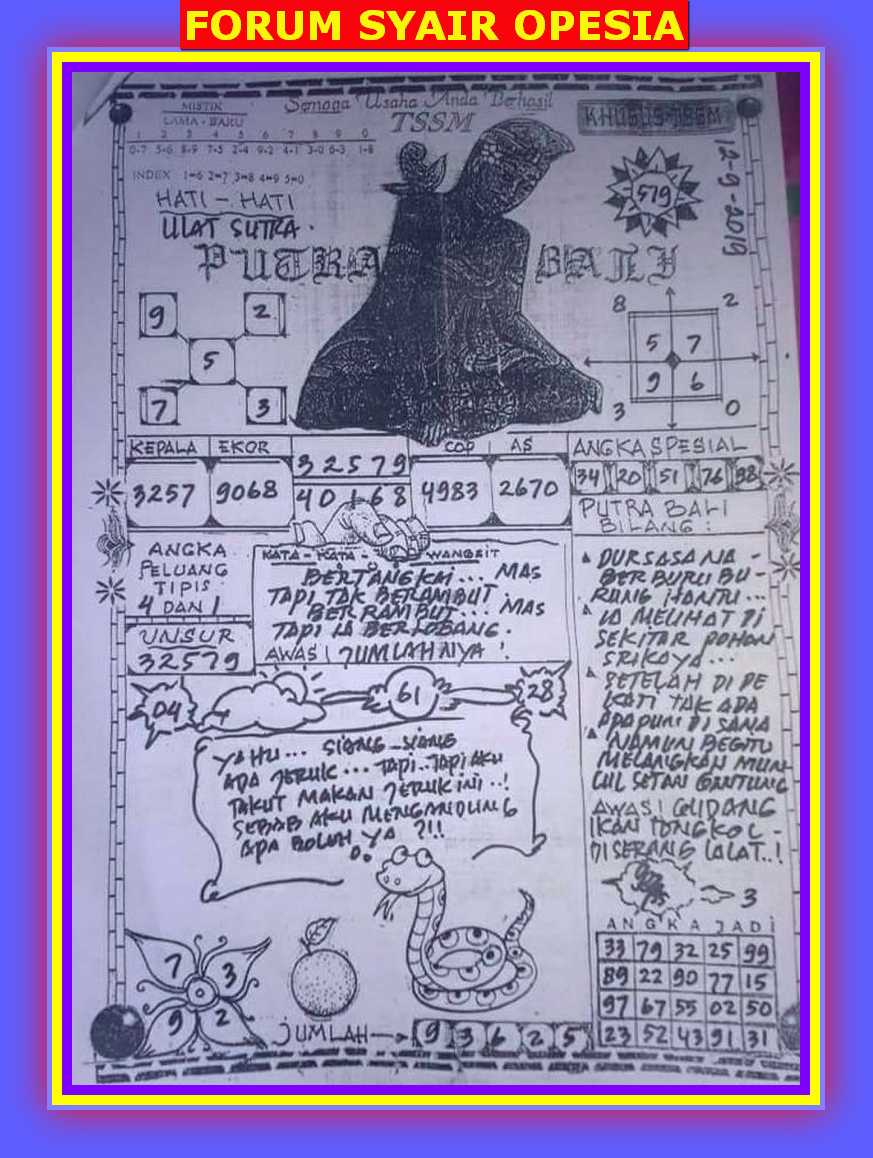 FORUM SYAIR OPESIA
MISTIK
LAMA - BARU
1 2 3 4 5 6 7 8 9 0
0-7 5-6 8-9 7-5 2-4 9-2 4-1 3-0 6-3 1-8
INDEX 1=6 2=7 3=8 4=9 5=0
Semoga Usaha Anda Berhasil
TSSM
KHUSUS TSSM
12-9-2019
HATI - HATI
ULAT SUTRA.
579
PUTRA BALI
9 2
5
7 3
8 2
5 7
9 6
3 0
KEPALA EKOR
3257 9068
32579
40168
COP AS
4983 2670
ANGKA SPESIAL
34 20 51 76 98
PUTRA BALI
BILANG :
ANGKA
PELUANG
TIPIS
4 DAN 1
UNSUR
32579
KATA - KATA - WANGSIT
BERTANGKAI... MAS
TAPI TAK BERAMBUT.
BERRAMBUT... MAS
TAPI IA BERLOBANG.
AWAS! JUMLAHNYA !
DURSASANA -
BERBURU BU -
RUNG HANTU...
IA MELIHAT DI
SEKITAR POHON
SRIKAYA...
SETELAH DI DE
KATI TAK ADA
APAPUN DI SANA
NAMUN BEGITU
MELANGKAH MUN
CUL SETAN GANTUNG
AWAS! GUDANG
IKAN TONGKOL -
DISERANG LALAT..!
3
04 61 28
YAHU... SIANG-SIANG
ADA JERUK... TAPI..TAPI AKU
TAKUT MAKAN JERUK INI..!
SEBAB AKU MENGANDUNG
APA BOLEH YA ?!!
7 3
9 2
JUMLAH
9 3 6 2 5
ANGKA JADI
33 79 32 25 99
89 22 90 77 15
97 67 55 02 50
23 52 43 91 31